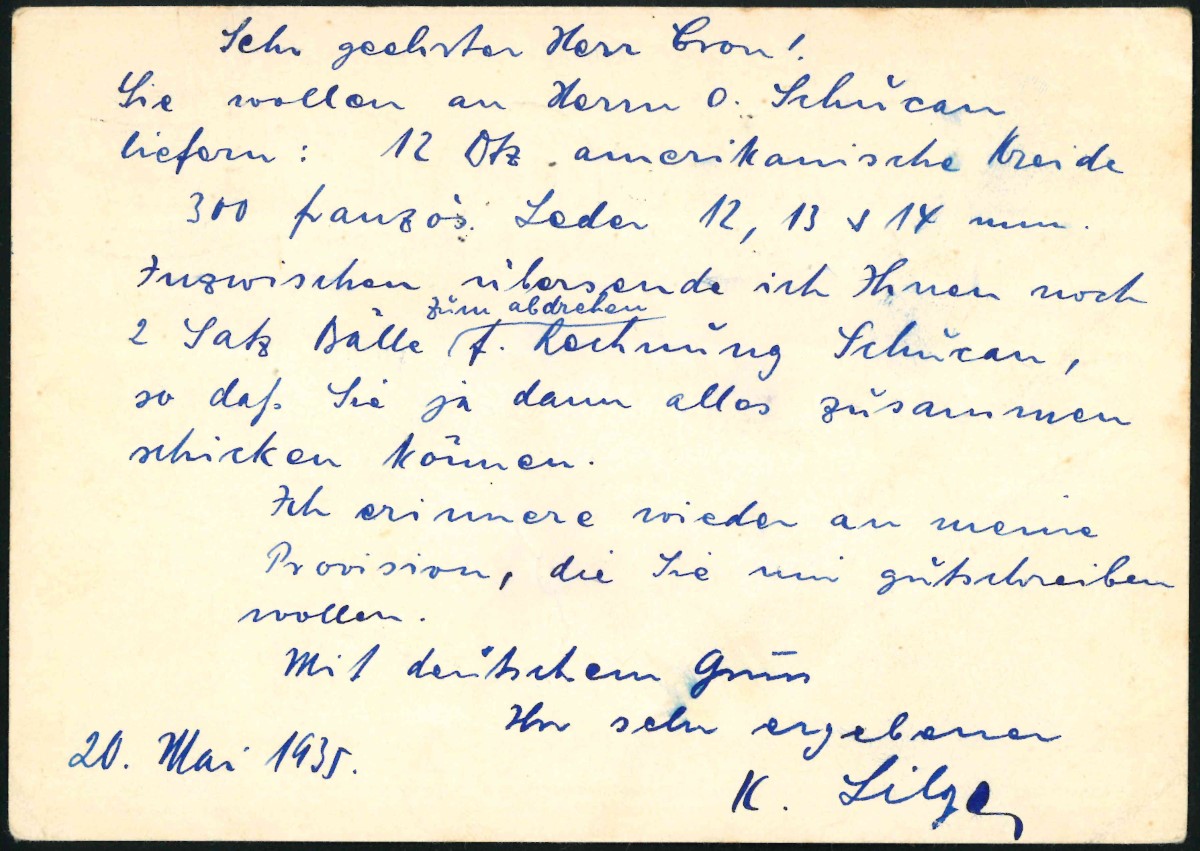 Sehr geehrter Herr Cron!
Sie wollen an Herrn O. Schucan
liefern: 12 Dtz amerikanische Kreide
300 französ. Leder 12, 13 & 14 mm.
Inzwischen übersende ich Ihnen noch
zum abdrehen
2 Satz Bälle f. Rechnung Schucan,
so daß Sie ja dann alles zusammen
schicken können.
Ich erinnere wieder an meine
Provision, die Sie mir gutschreiben
wollen.
Mit deutschem Gruss
Ihr sehr ergebener
20. Mai 1935.
K. Lilge